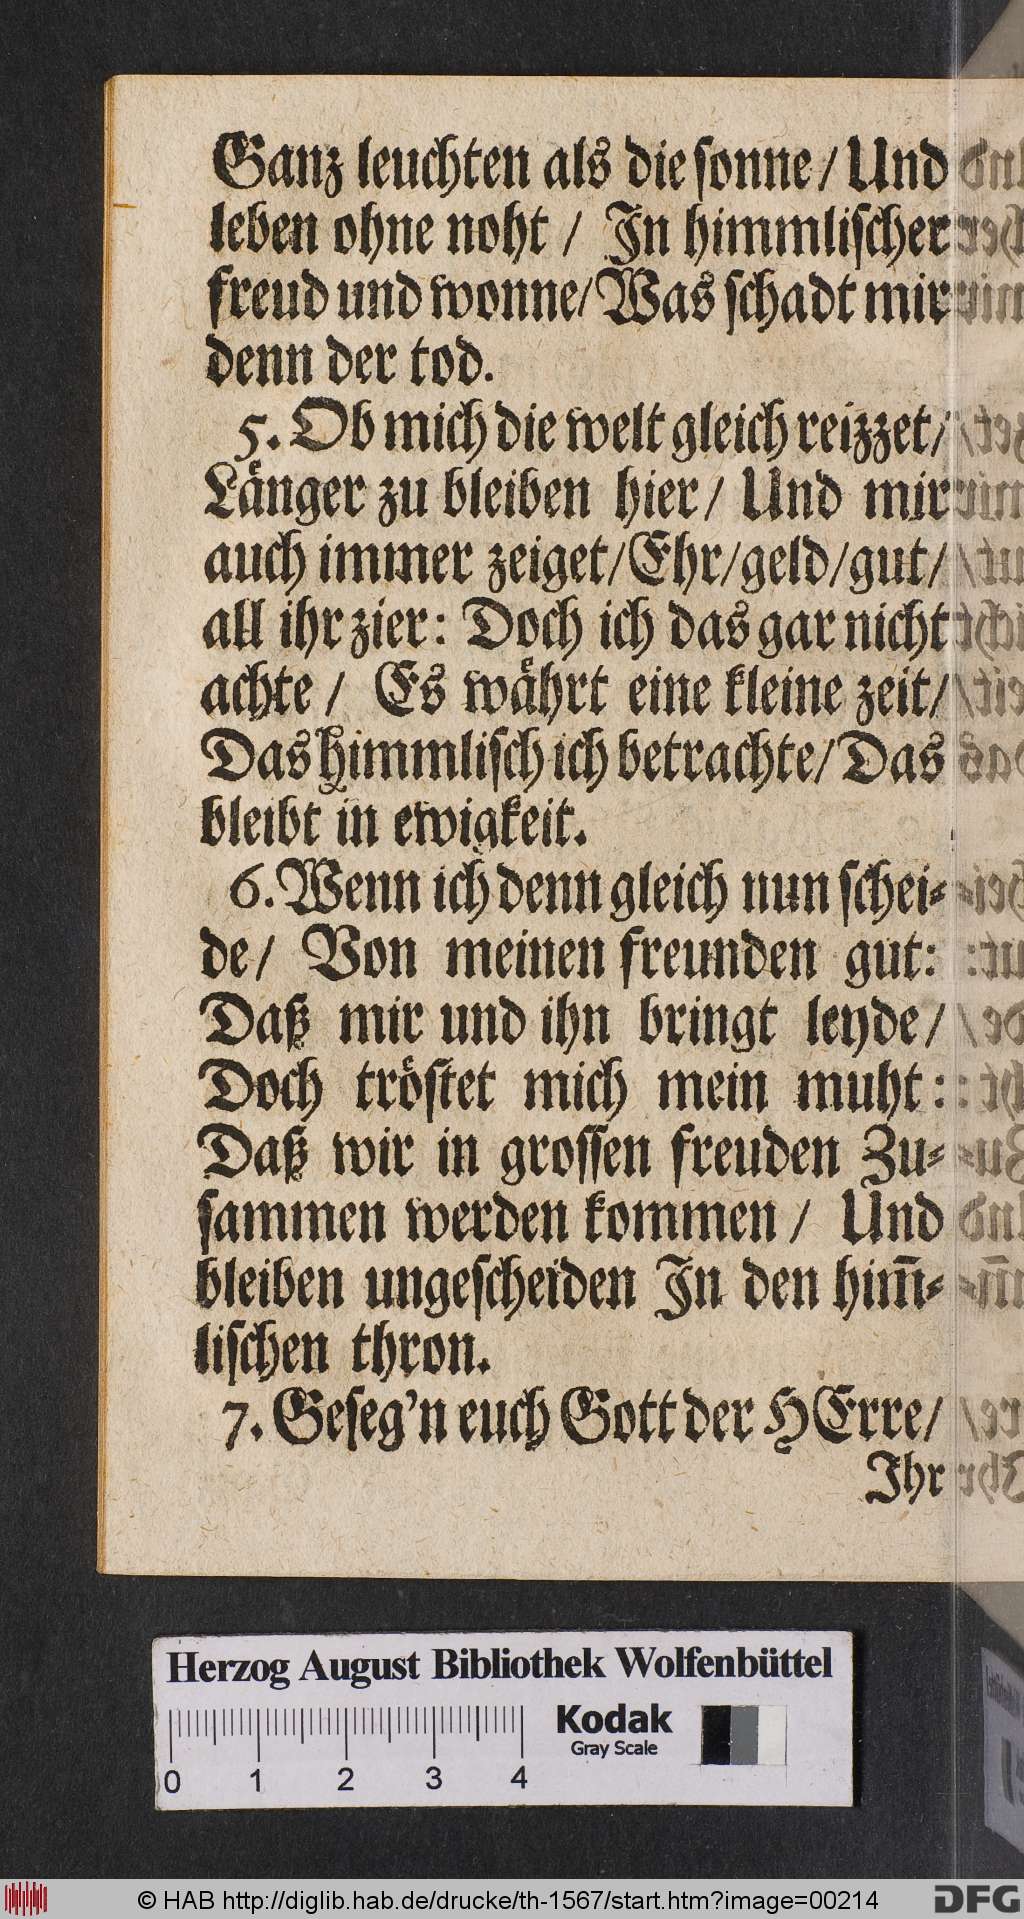 Ganz leuchten als die sonne / Und
leben ohne noht / In himmlischer
freud und wonne / Was schadt mir
denn der tod.
5. Ob mich die welt gleich reizzet /
Länger zu bleiben hier / Und mir
auch immer zeiget / Ehr / geld / gut /
all ihr zier: Doch ich das gar nicht
achte / Es währt eine kleine zeit /
Das himmlisch ich betrachte / Das
bleibt in ewigkeit.
6. Wenn ich denn gleich nun schei-
de / Von meinen freunden gut:
Daß mir und ihn bringt leyde /
Doch tröstet mich mein muht:
Daß wir in grossen freuden Zu-
sammen werden kommen / Und
bleiben ungescheiden In den him̃-
lischen thron.
7. Geseg'n euch Gott der HErre /
Ihr
Herzog August Bibliothek Wolfenbüttel
Kodak
Gray Scale
0 1 2 3 4
© HAB http://diglib.hab.de/drucke/th-1567/start.htm?image=00214
DFG